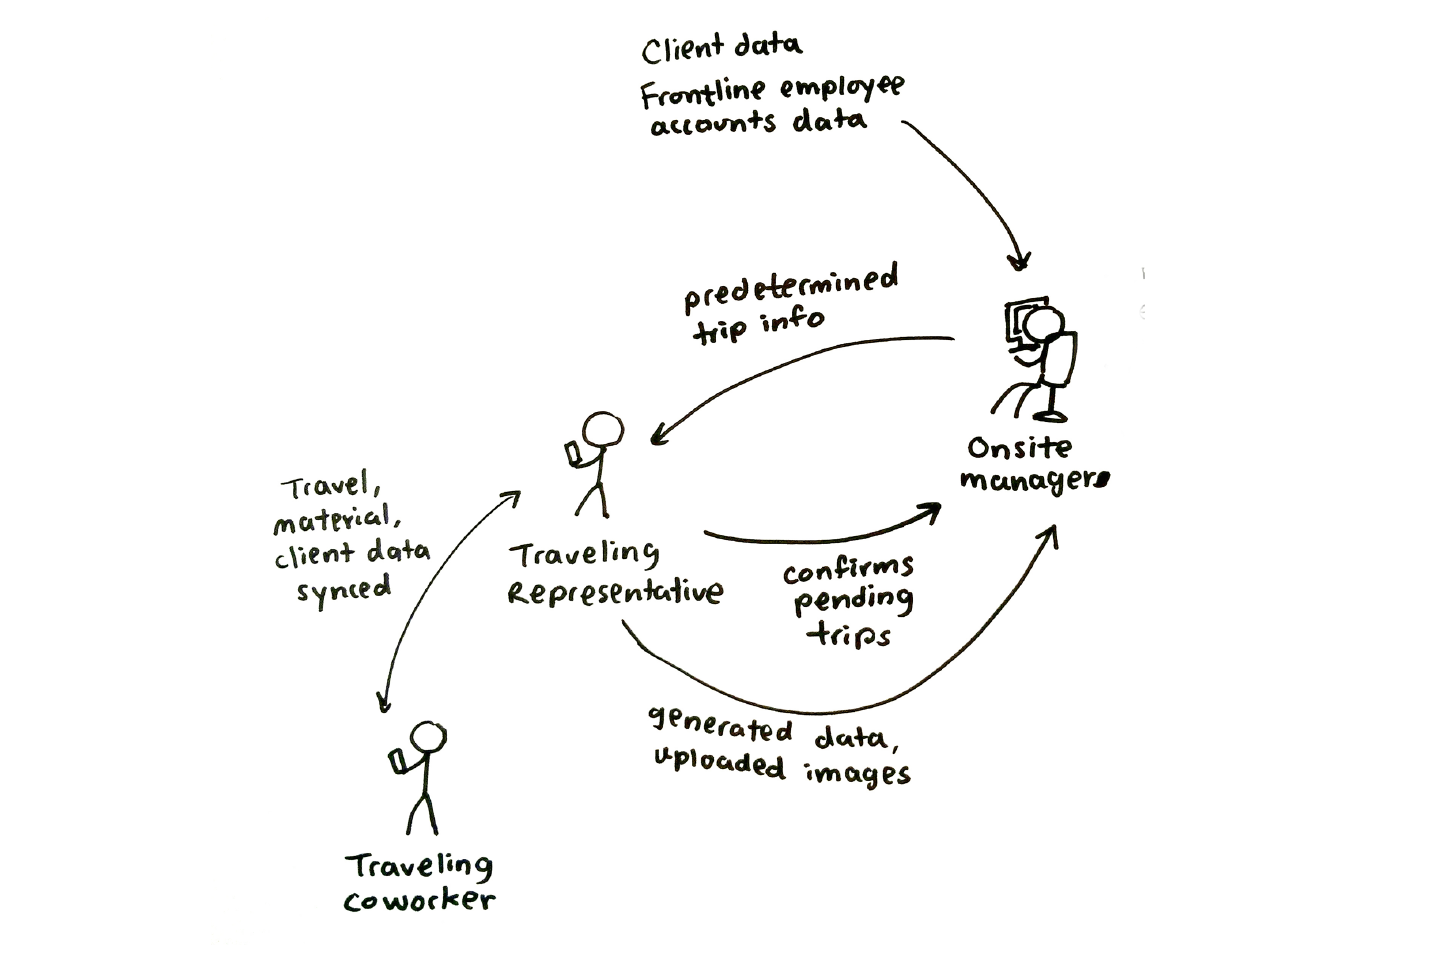 Client data
Frontline employee
accounts data
predetermined
trip info
Onsite
manager
Travel,
material,
client data
synced
Traveling
Representative
confirms
pending
trips
generated data,
uploaded images
Traveling
coworker